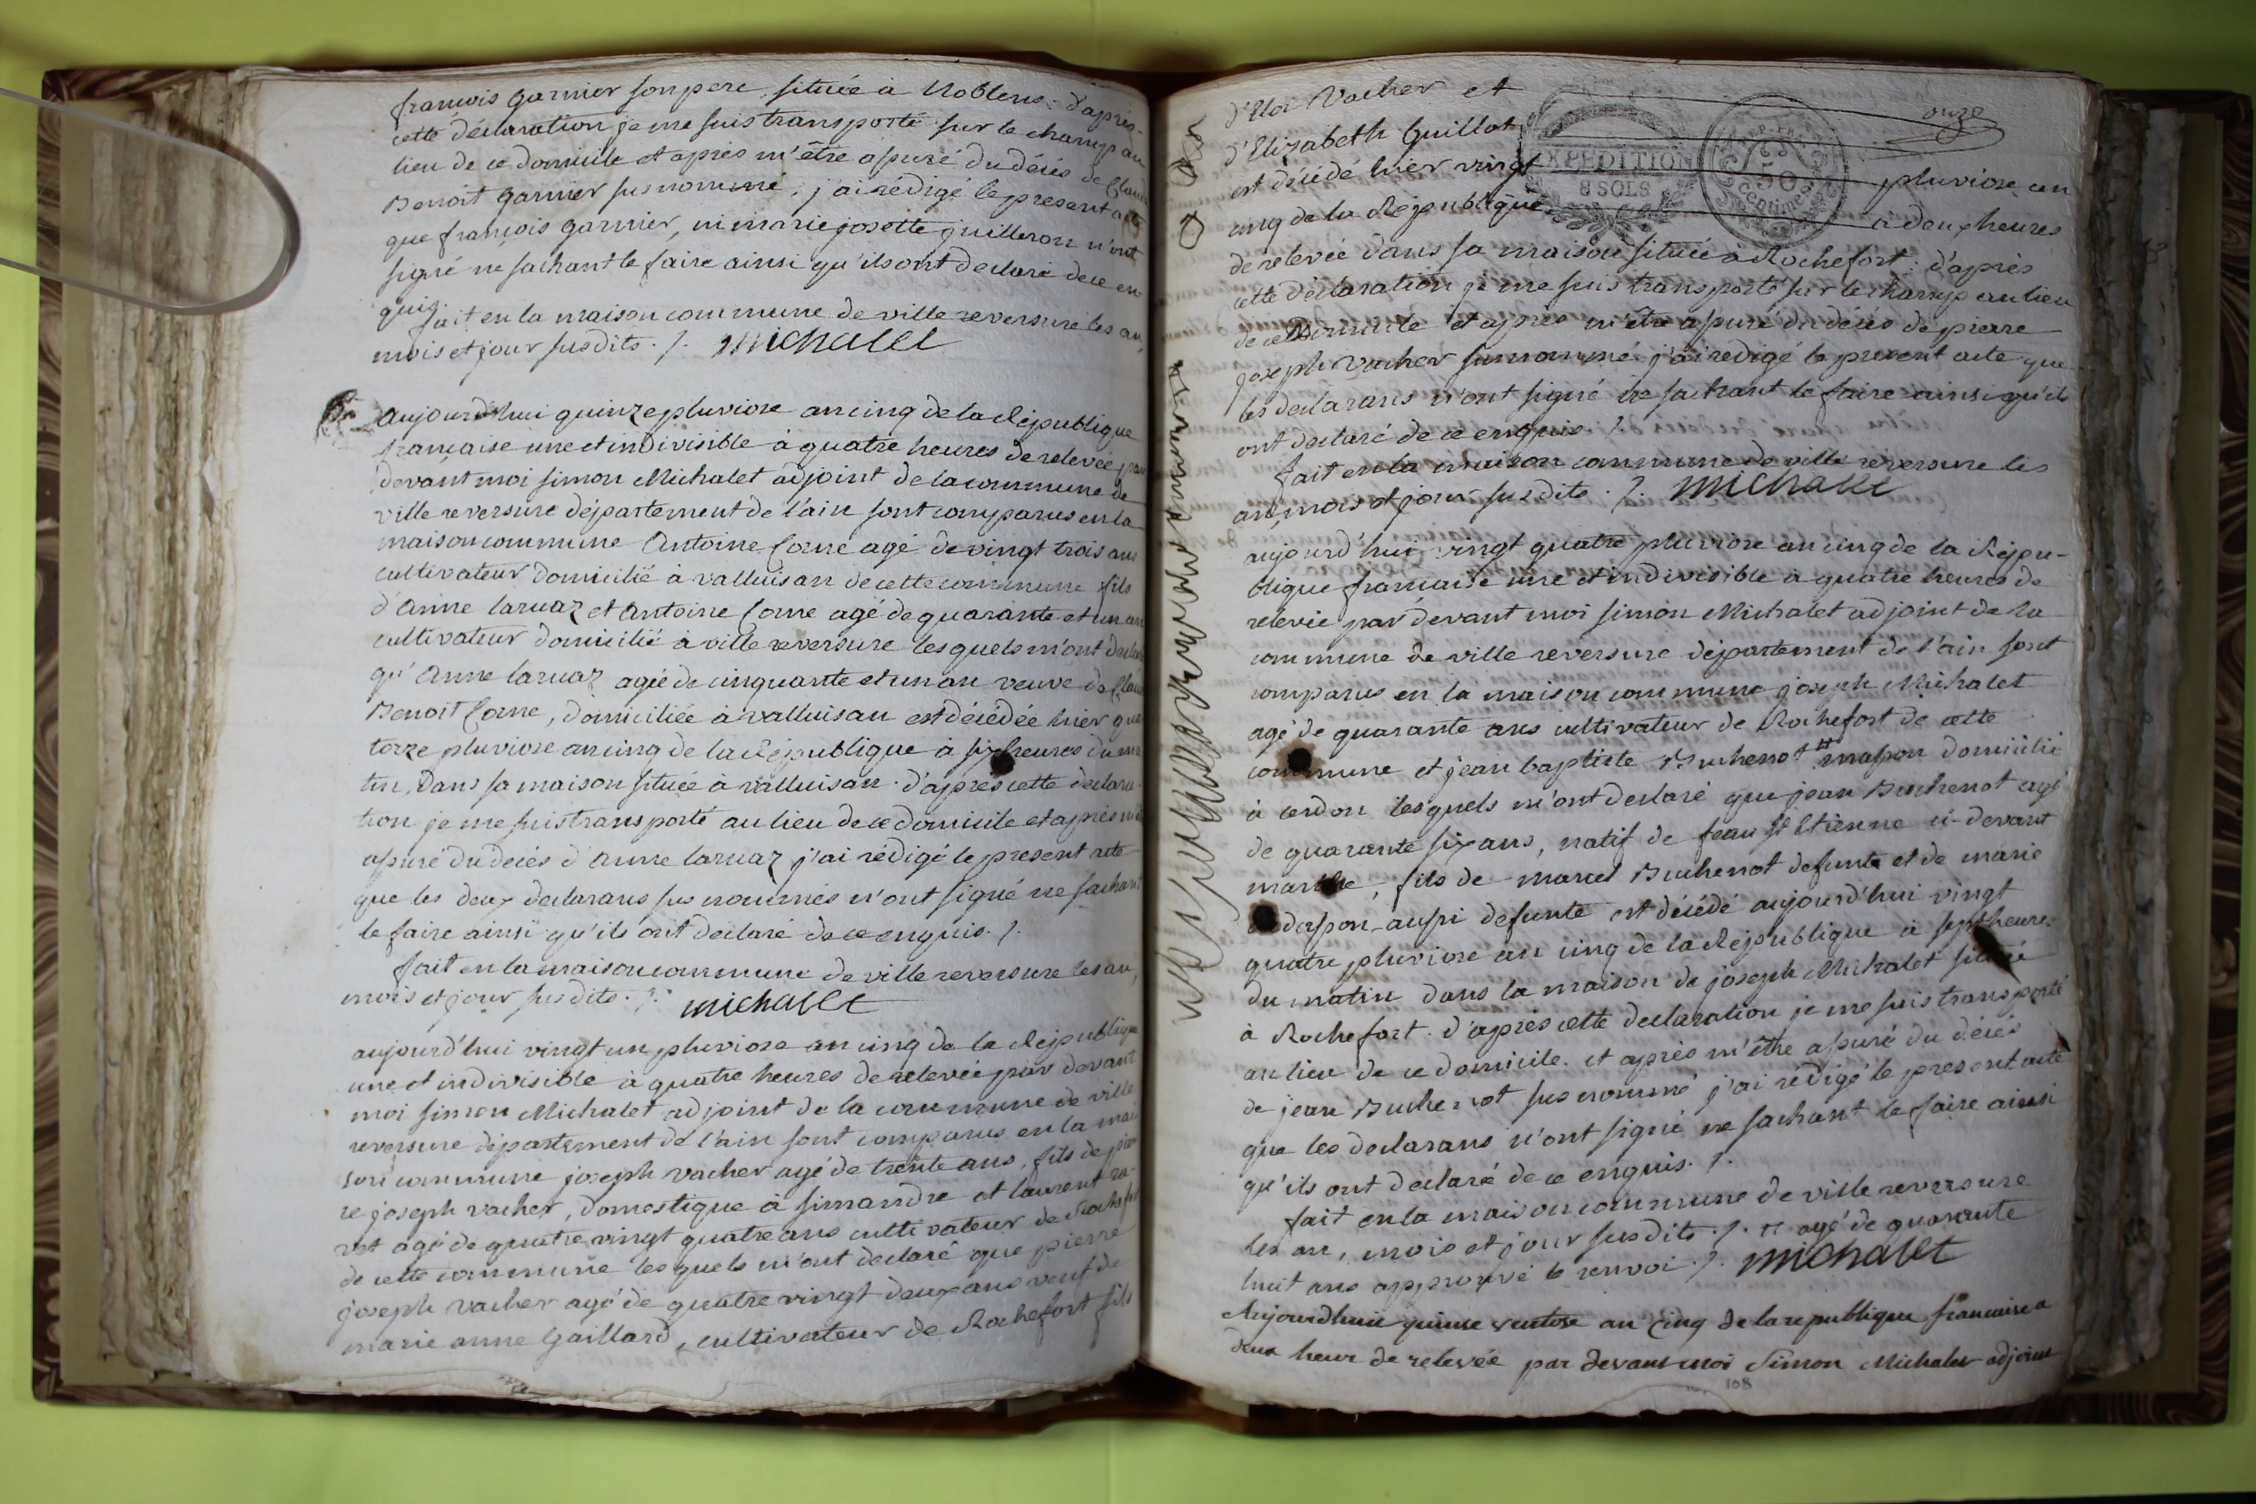 françois Garnier son pere, située à Noblens. d'après
cette déclaration je me suis transporté sur le champ au
lieu de ce domicile et après m'être assuré du décès de Claude
Benoit Garnier susnommé, j'ai rédigé le présent acte
que françois Garnier, ni marie josette guilleron n'ont
signé ne sachant le faire ainsi qu'ils ont declaré de ce en
quis
fait en la maison commune de ville reversure les an,
mois et jour susdits ./. Michalet
aujourd'hui quinze pluviose an cinq de la République
française une et indivisible à quatre heures de relevée par
devant moi simon Michalet adjoint de la commune de
ville reversure département de l'ain sont comparus en la
maison commune Antoine Corne agé de vingt trois ans
cultivateur domicilié à valluisan de cette commune fils
d'Anne laruaz et Antoine Corne agé de quarante et un an
cultivateur domicilié à ville reversure lesquels m'ont declaré
qu'Anne laruaz agée de cinquante et un an veuve de Claude
Benoit Corne, domiciliée à valluisan est décédée hier qua
torze pluviose an cinq de la République à six heures du ma
tin, dans sa maison située à valluisan. d'après cette declara-
tion je me suis transporté au lieu de ce domicile et après m'être
assuré du decès d'Anne laruaz j'ai rédigé le present acte
que les deux declarans sus nommés n'ont signé ne sachant
le faire ainsi qu'ils ont declaré de ce enquis ./.
fait en la maison commune de ville reversure les an,
mois et jour susdits ./. Michalet
aujourd'hui vingt un pluviose an cinq de la République
une et indivisible à quatre heures de relevée par devant
moi simon Michalet adjoint de la commune de ville
reversure département de l'ain sont comparus en la mai
son commune joseph vacher agé de trente ans, fils de pier
re joseph vacher, domestique à simandre et laurent ra-
vet agé de quatre vingt quatre ans cultivateur de Rochefort
de cette commune lesquels m'ont declaré que pierre
joseph vacher agé de quatre vingt deux ans veuf de
marie anne Gaillard, cultivateur de Rochefort fils
d'Eloi Vacher et
onze
d'Elizabeth Guillot
EXPEDITION
8 SOLS
REP. FRA.
50
Centimes
est décédé hier vingt pluviose an
cinq de la République à deux heures
de relevée dans sa maison située à Rochefort: d'après
cette declaration je me suis transporté sur le champ au lieu
de ce domicile et après m'être assuré du décès de pierre
joseph vacher susnommé j'ai redigé le present acte que
les declarans n'ont signé ne sachant le faire ainsi qu'ils
ont declaré de ce enquis ./.
fait en la maison commune de ville reversure les
an, mois et jour susdits ./. Michalet
aujourd'hui vingt quatre pluviose an cinq de la Répu-
blique française une et indivisible à quatre heures de
relevée par devant moi simon Michalet adjoint de la
commune de ville reversure département de l'ain sont
comparus en la maison commune joseph Michalet
agé de quarante ans cultivateur de Rochefort de cette
commune et jean baptiste Buchenot # masson domicilié
à cerdon lesquels m'ont declaré que jean Buchenot agé
de quarante six ans, natif de jean st Etienne ci-devant
marche, fils de marcel Buchenot defunt et de marie
aussi defunte est décédé aujourd'hui vingt
quatre pluviose an cinq de la République à sept heures
du matin dans la maison de joseph Michalet située
à Rochefort. d'après cette declaration je me suis transporté
au lieu de ce domicile. et après m'être assuré du décès
de jean Buchenot sus nommé j'ai rédigé le present acte
que les declarans n'ont signé ne sachant le faire ainsi
qu'ils ont declaré de ce enquis ./.
fait en la maison commune de ville reversure
les an, mois et jour susdits ./. # agé de quarante
huit ans approuvé le renvoi ./. Michalet
Aujourdhuit quinse ventose an Cinq de la republique francaise a
deux heur de relevée par devant moi Simon Michalet adjoint
108